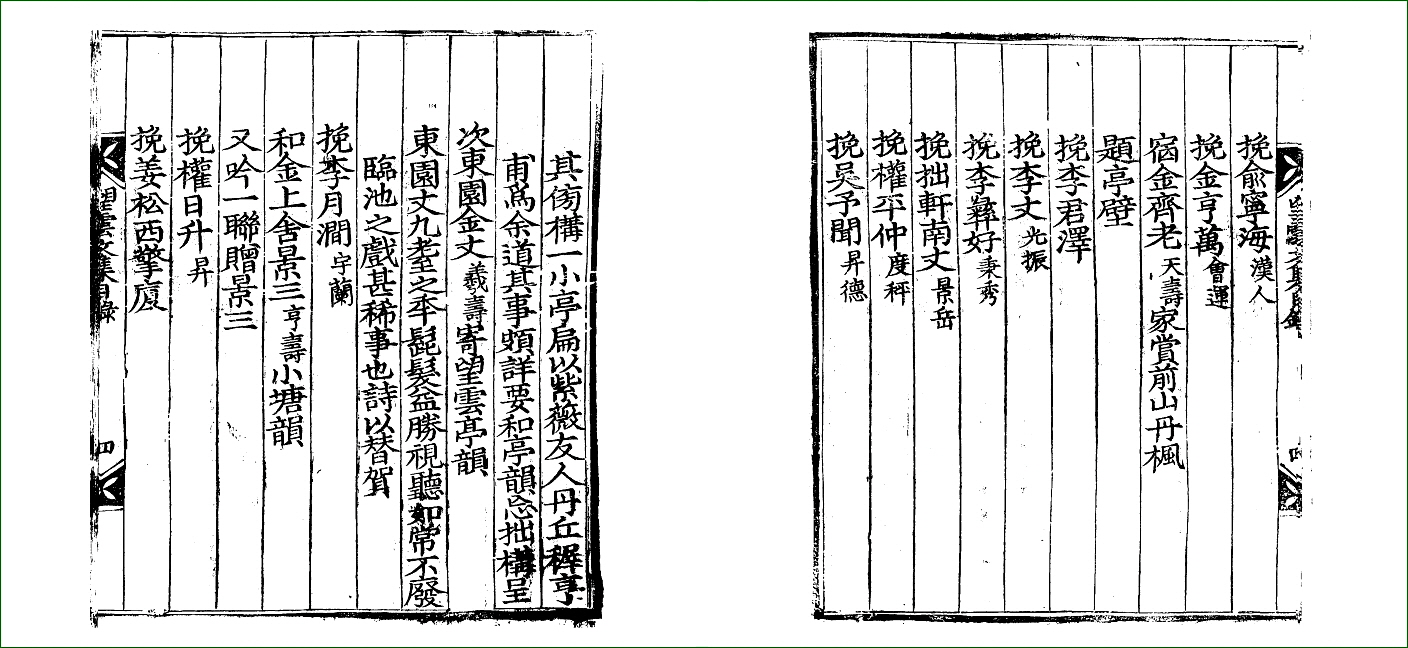 其傍構一小亭扁以紫薇友人丹丘稺亨
甫爲余道其事頗詳要和亭韻忘拙構呈
次東園金丈羲壽寄望雲亭韻
東園丈九耋之年髭髮益勝視聽如常不廢
臨池之戲甚稀事也詩以替賀
挽李月澗宇蘭
和金上舍景三亨壽小塘韻
又吟一聯贈景三
挽權日升昇
挽姜松西擎廈
望雲文集目錄 四
挽兪寧海漢人
挽金亨萬會運
宿金齊老天壽家賞前山丹楓
題亭壁
挽李君澤
挽李丈光振
挽李彝好秉秀
挽拙軒南丈景岳
挽權平仲度秤
挽吳予聞昇德